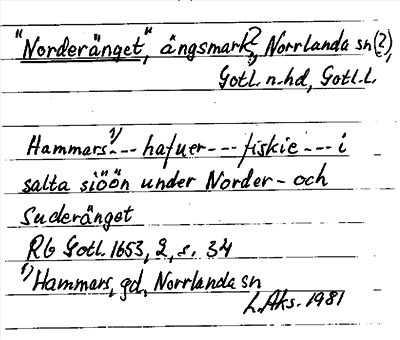 "Norderänget", ängsmark?, Norrlanda sn(2),
Gotl. n. hd, Gotl. l.
Hammars¹⁾--- hafuer --- fiskie --- i
salta siöön under Norder- och
Suderänget
Rb Gotl. 1653, 2, s. 34
¹⁾ Hammars, gd, Norrlanda sn
L. Aks. 1981